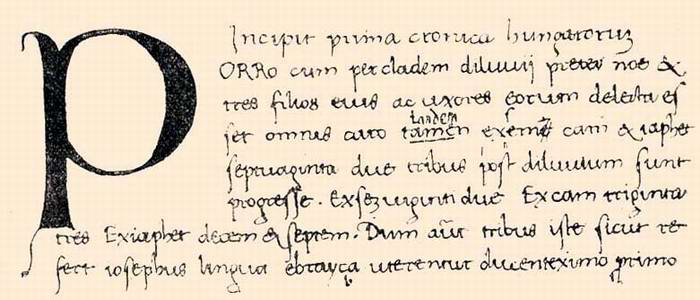 Incipit prima cronica hungarorum
PORRO cum per cladem diluuij preter noe &
tres filios eius ac uxores eorum deleta es
set omnis caro tamen tandem exsem cam & iaphet
septuaginta due tribus post diluuium sunt
progresse. Exsez uiginti due Excam triginta
tres Exiaphet decem & septem. Dum aut tribus iste sicut re
fert iosephus lingua ebrayca uterentur ducenteximo primo